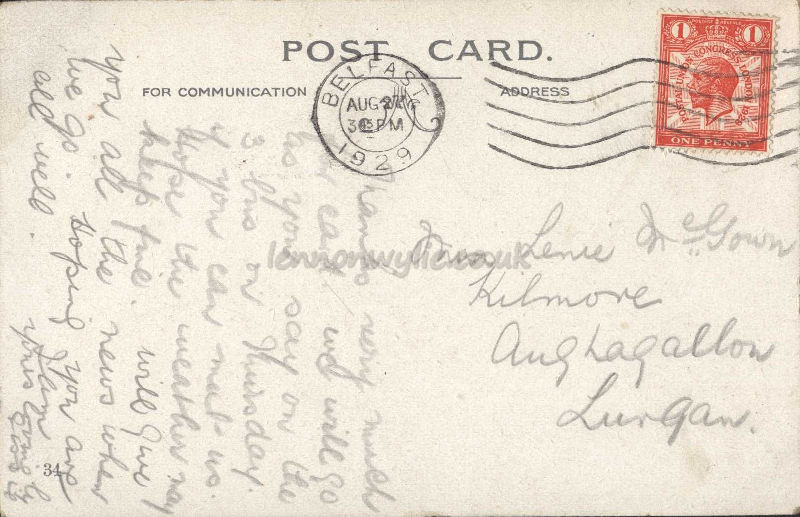 POST CARD.
FOR COMMUNICATION
ADDRESS
BELFAST
AUG 27
3 PM
1929
POSTAL UNION CONGRESS LONDON 1929
POSTAGE REVENUE
1 1
ONE PENNY
Lenie McGown
Kilmore
Aughagallon
Lurgan.
Thanks very much
for card. we will go
as you say on the
3 bus on Thursday.
if you can meet us.
Hope the weather may
keep fine. will give
you all the news when
we go. Hoping you are
all well.
yours
34
lennonwylie.co.uk